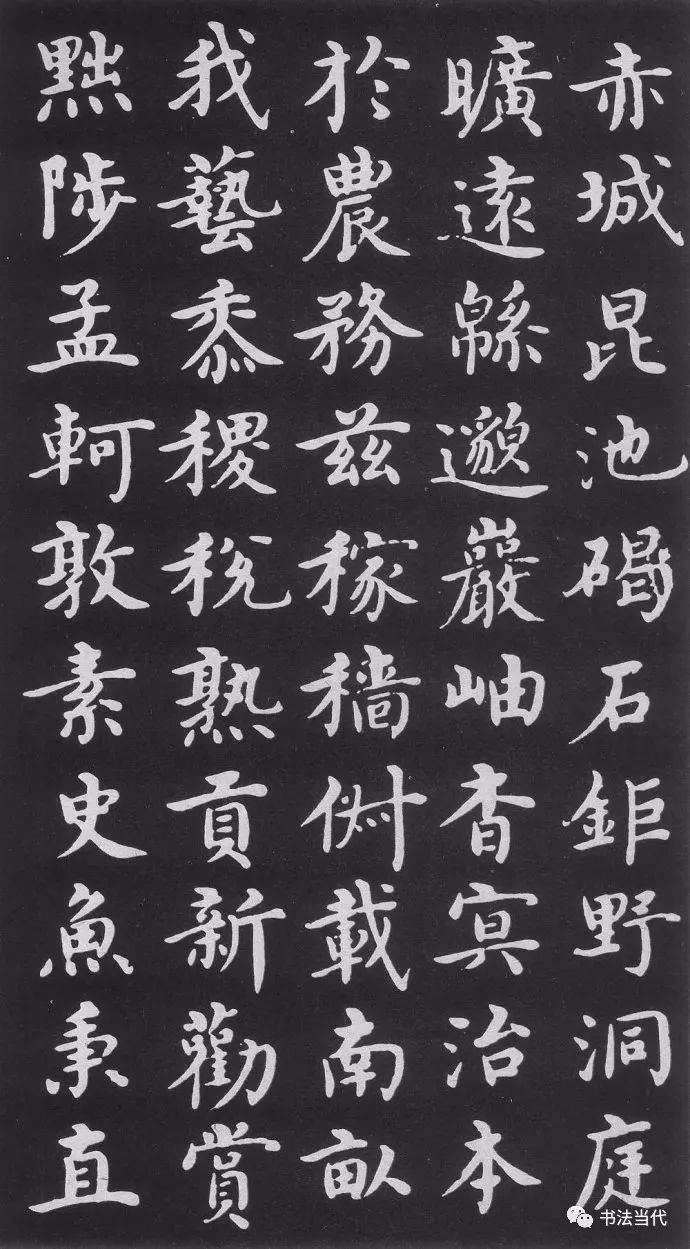 赤城昆池碣石鉅野洞庭
曠遠緜邈巖岫杳冥治本
於農務茲稼穡俶載南畝
我藝黍稷稅熟貢新勸賞
黜陟孟軻敦素史魚秉直
书法当代